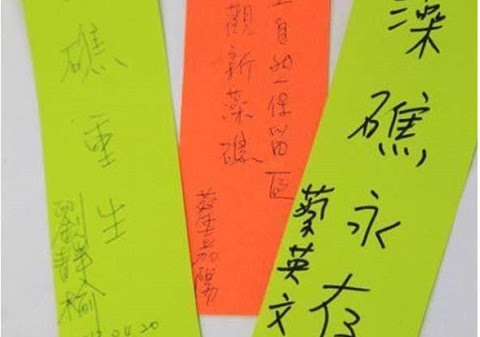 礁重生
劉靜榆
04.20
自然保留區
觀新藻礁
蔡嘉陽
藻礁永存
蔡英文